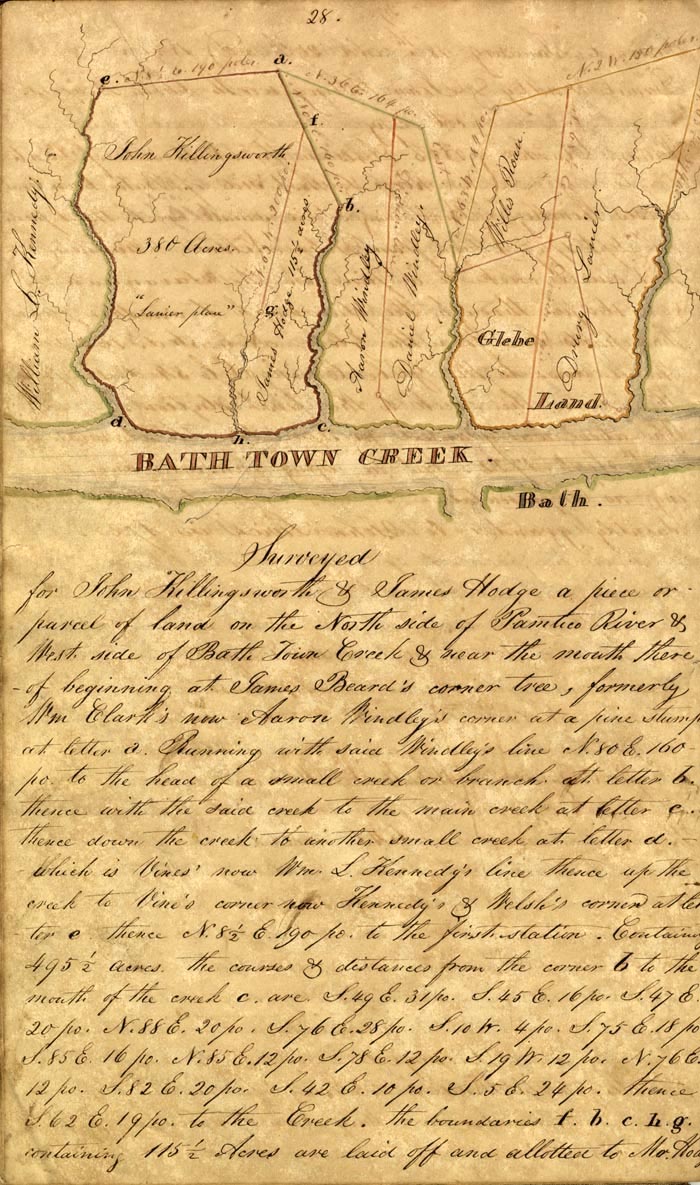 28.
e. N. 8½ E. 190 poles. a.
N. 36 E. 164 po.
N. 2 W. 150 poles.
f.
John Killingsworth
b.
380 Acres.
"Lanier plan"
g.
James Hodge 115½ acres
William L. Kennedy.
Aaron Windley
Daniel Windley.
Willis Roan.
Drury Lanier.
Glebe
Land.
d. h. c.
BATH TOWN CREEK.
Bath.
Surveyed
for John Killingsworth & James Hodge a piece or
parcel of land on the North side of Pamtico River &
West side of Bath Town Creek & near the mouth there
- of beginning at James Beard's corner tree, formerly
Wm Clark's now Aaron Windley's corner at a pine stump
at letter a. Running with said Windley's line N. 80 E. 160
po. to the head of a small creek or branch at letter b.
thence with the said creek to the main creek at letter c.
thence down the creek to another small creek at letter d. -
- which is Vines' now Wm. L. Kennedy's line thence up the
creek to Vine's corner now Kennedy's & Welsh's corner at let
ter e thence N. 8½ E. 190 po. to the first station. Containing
495½ acres. the courses & distances from the corner b to the
mouth of the creek c. are S. 49 E. 31 po. S. 45 E. 16 po. S. 47 E.
20 po. N. 88 E. 20 po. S. 76 E. 28 po. S. 10 W. 4 po. S. 75 E. 18 po
S. 85 E. 16 po. N. 85 E. 12 po. S. 78 E. 12 po. S. 19 W. 12 po. N. 76 E.
12 po. S. 82 E. 20 po. S. 42 E. 10 po. S. 5 E. 24 po. thence
S. 62 E. 19 po. to the Creek. the boundaries f. b. c. h. g.
containing 115½ Acres are laid off and allotted to Mr. Hod